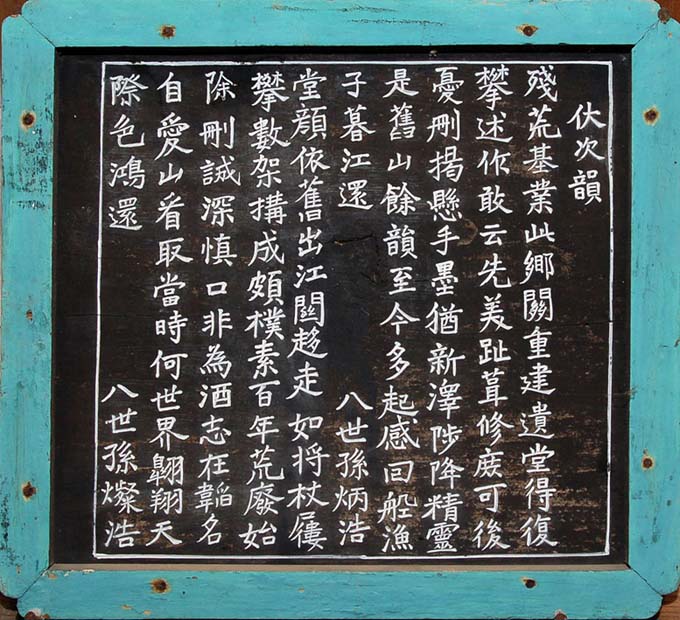 伏次韻
殘荒基業此鄉關重建遺堂得復
攀述作敢云先美趾葺修庶可後
憂刪揭懸手墨猶新澤陟降精靈
是舊山餘韻至今多起感回船漁
子暮江還 八世孫炳浩
堂顔依舊出江關趍走如将杖屨
攀數架搆成頗樸素百年荒廢始
除刪誡深慎口非為酒志在韜名
自愛山看取當時何世界翺翔天
際色鴻還 八世孫燦浩